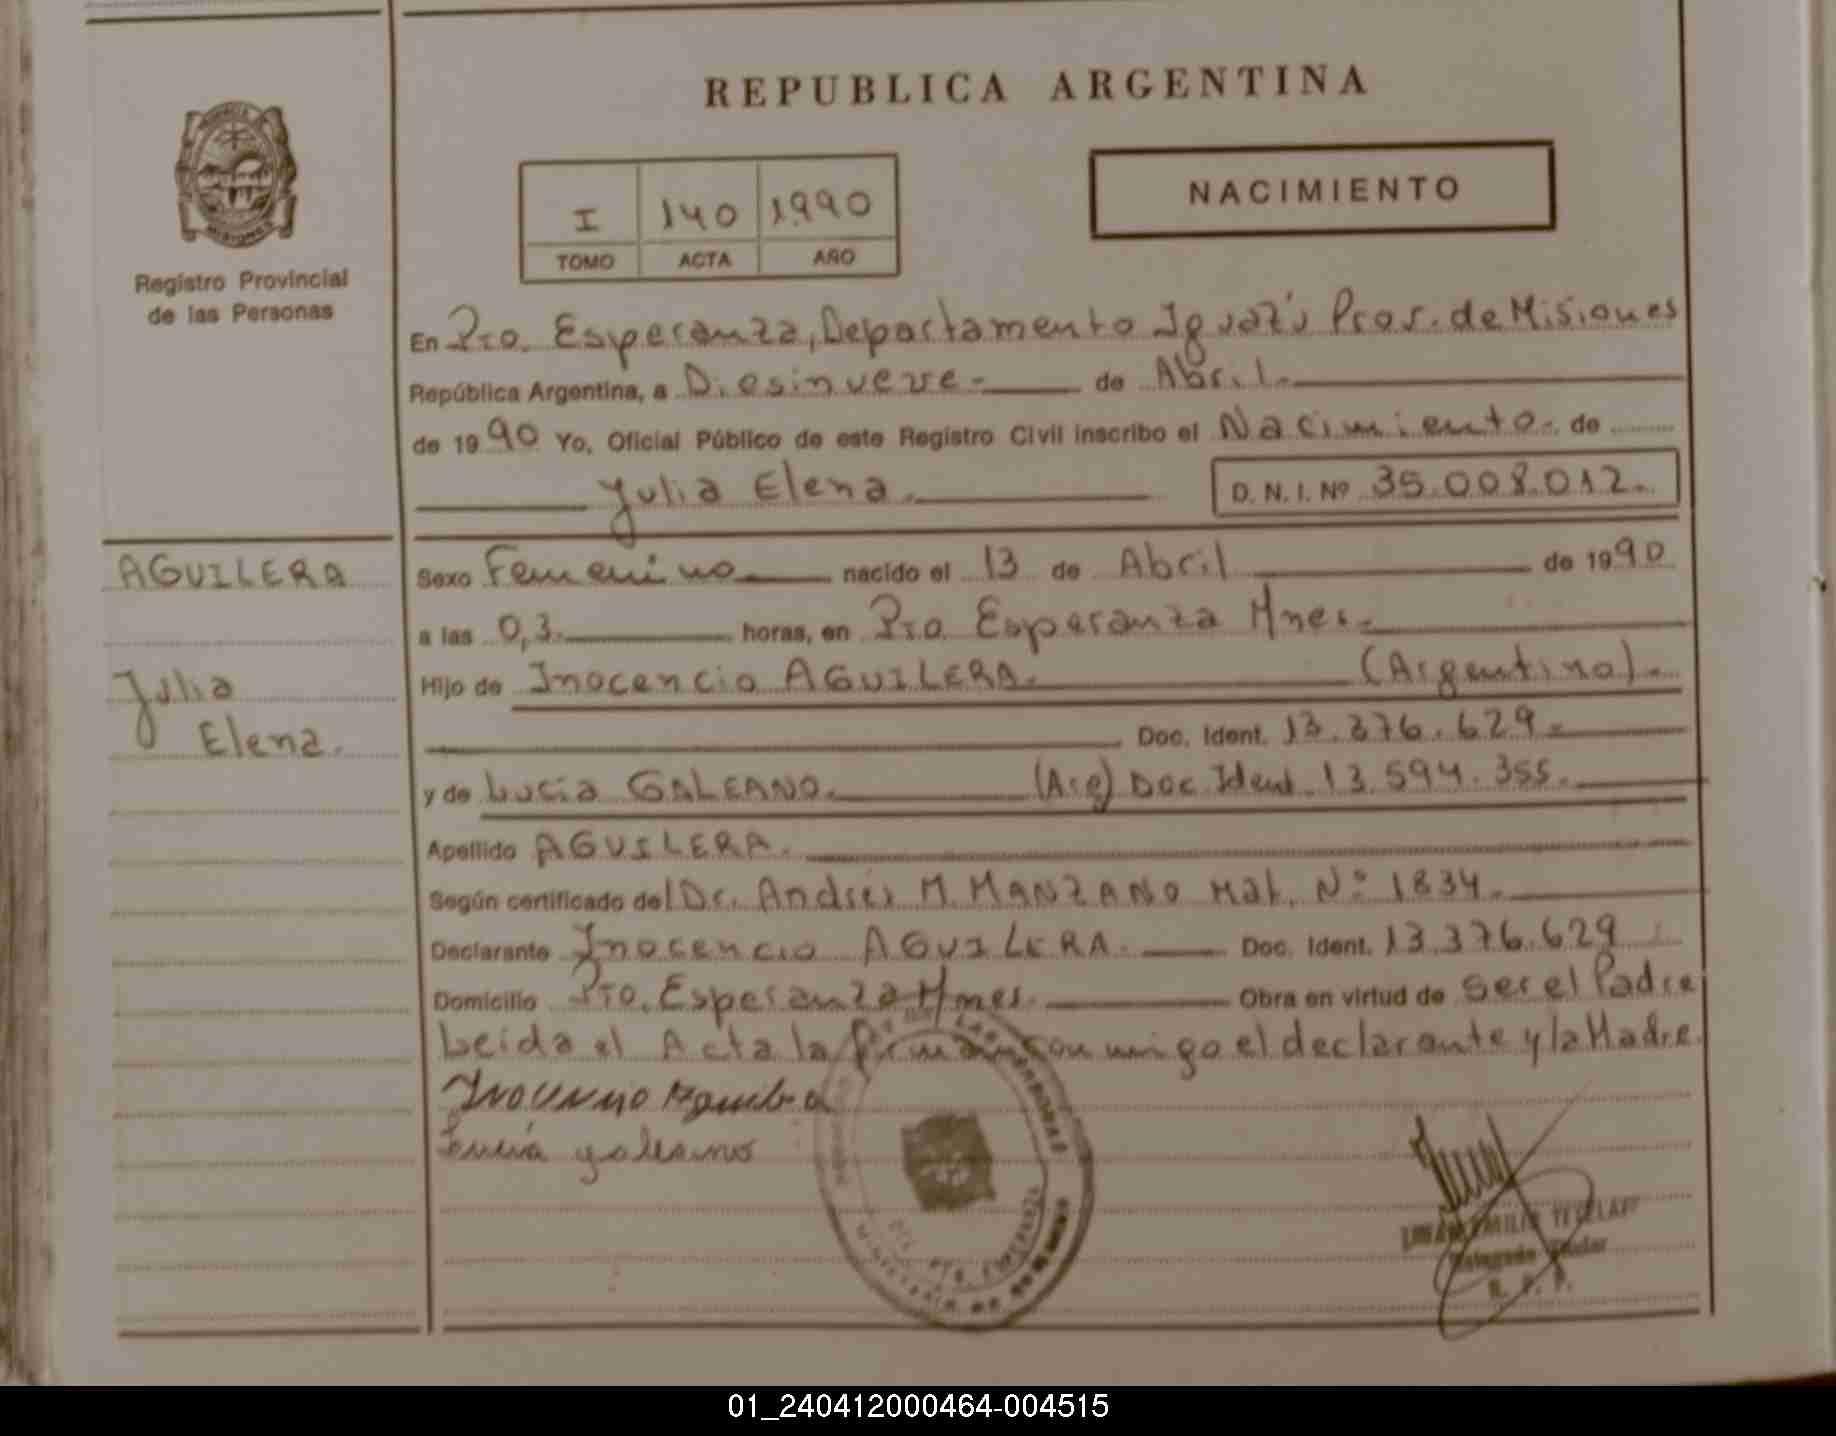 REPUBLICA ARGENTINA
MISIONES
Registro Provincial
de las Personas
I 140 1990
TOMO ACTA AÑO
NACIMIENTO
En Pto. Esperanza, Departamento Iguazú Prov. de Misiones
República Argentina, a Diesinueve.- de Abril.-
de 1990 Yo, Oficial Público de este Registro Civil inscribo el Nacimiento.- de
Julia Elena. D.N.I. Nº 35.008.012.-
AGUILERA
Julia
Elena.
Sexo Femenino nacido el 13 de Abril de 1990
a las 0,3.- horas, en Pto Esperanza Mnes.-
Hijo de Inocencio AGUILERA. (Argentino).-
Doc. Ident. 13.376.629.-
y de Lucia GALEANO. (Arg) Doc Ident. 13.594.355.-
Apellido AGUILERA.
Según certificado del Dr. Andrés M. MANZANO Mat. Nº 1834.-
Declarante Inocencio AGUILERA.- Doc. Ident. 13.376.629
Domicilio Pto. Esperanza Mnes. Obra en virtud de ser el Padre
Leida el Acta la firman conmigo el declarante y la Madre.
Inocencio Aguilera
Lucia galeano
PTO. ESPERANZA
Delegado Titular
R. P. P.
01_240412000464-004515